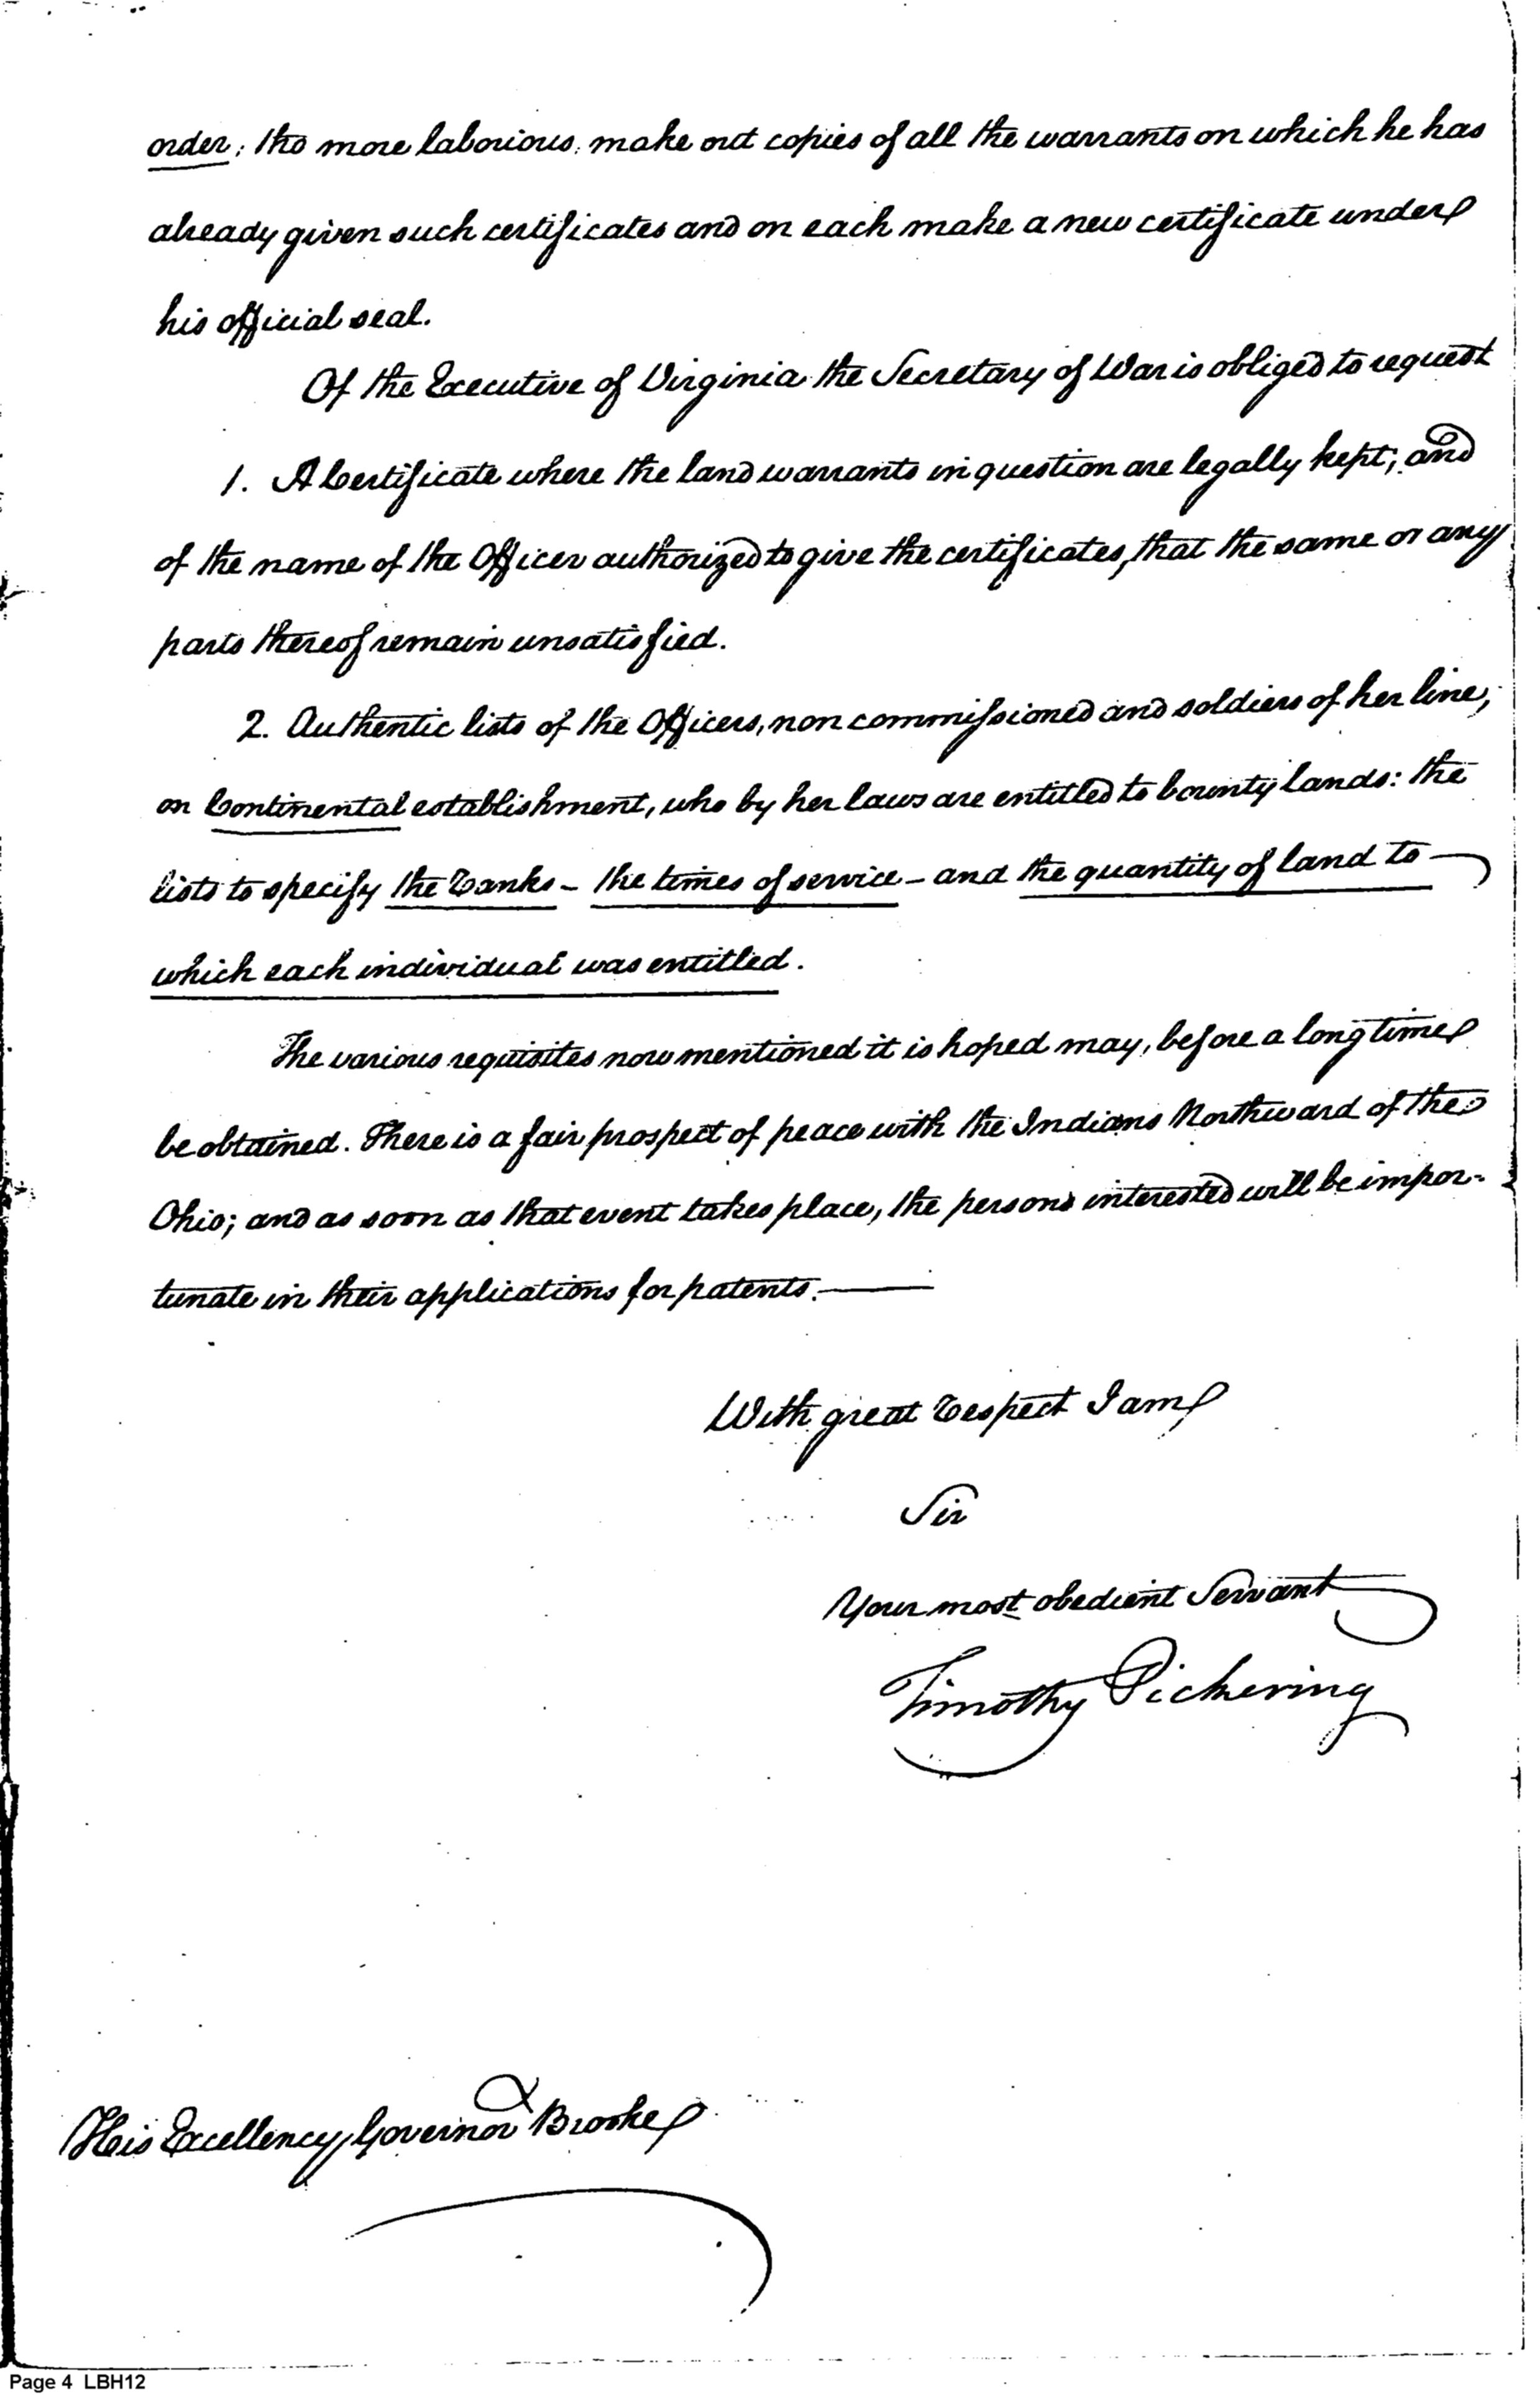 order; tho more laborious, make out copies of all the warrants on which he has
already given such certificates and on each make a new certificate under
his official seal.
Of the Executive of Virginia the Secretary of War is obliged to request
1. A Certificate where the land warrants in question are legally kept; and
of the name of the Officer authorized to give the certificates, that the same or any
parts thereof remain unsatisfied.
2. Authentic lists of the Officers, non commissioned and soldiers of her line,
on Continental establishment, who by her laws are entitled to bounty lands: the
lists to specify the Ranks – the times of service – and the quantity of land to
which each individual was entitled.
The various requisites now mentioned it is hoped may, before a long time
be obtained. There is a fair prospect of peace with the Indians Northward of the
Ohio; and as soon as that event takes place, the persons interested will be impor-
tunate in their applications for patents.
With great Respect I am
Sir
Your most obedient Servant
Timothy Pickering
His Excellency Governor Brooke
Page 4 LBH12